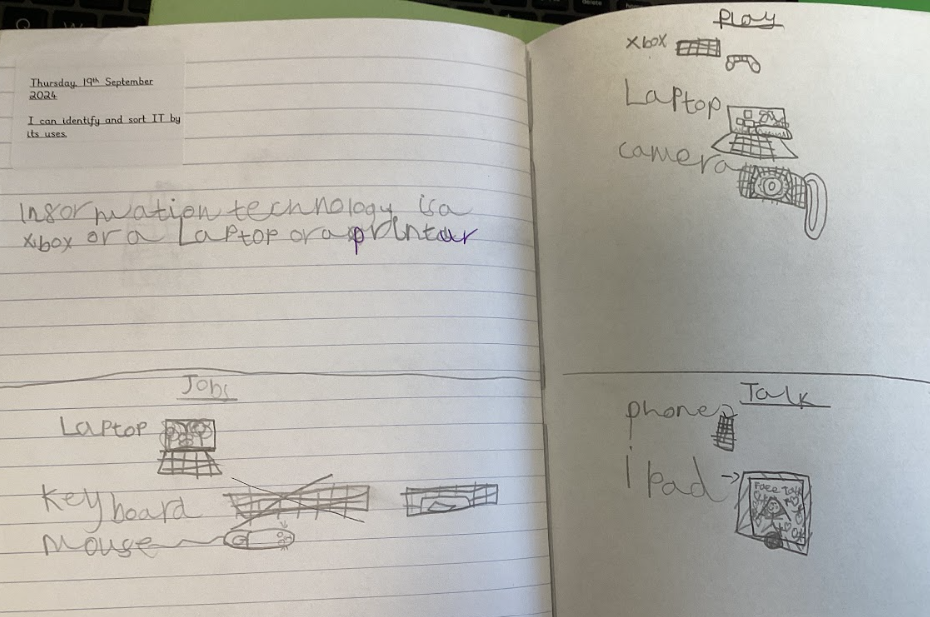 Thursday 19th September
2024
I can identify and sort IT by
its uses.
Information technology is a
xbox or a Laptop or a printur
Jobs
Laptop
Keyboard
Mouse
Play
xbox
Laptop
camera
Talk
phone
ipad